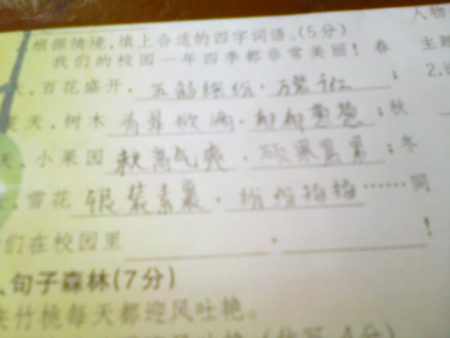 根据情境,填上合适的四字词语。(5分)
我们的校园一年四季都非常美丽!春
天,百花盛开,五彩缤纷、万紫千红;
夏天,树木青翠欲滴、郁郁葱葱;秋
天,小果园秋高气爽、硕果累累;冬
,雪花银装素裹,纷纷扬扬……同
们在校园里 , !
、句子森林(7分)
夹竹桃每天都迎风吐艳。
人物
主题
2.